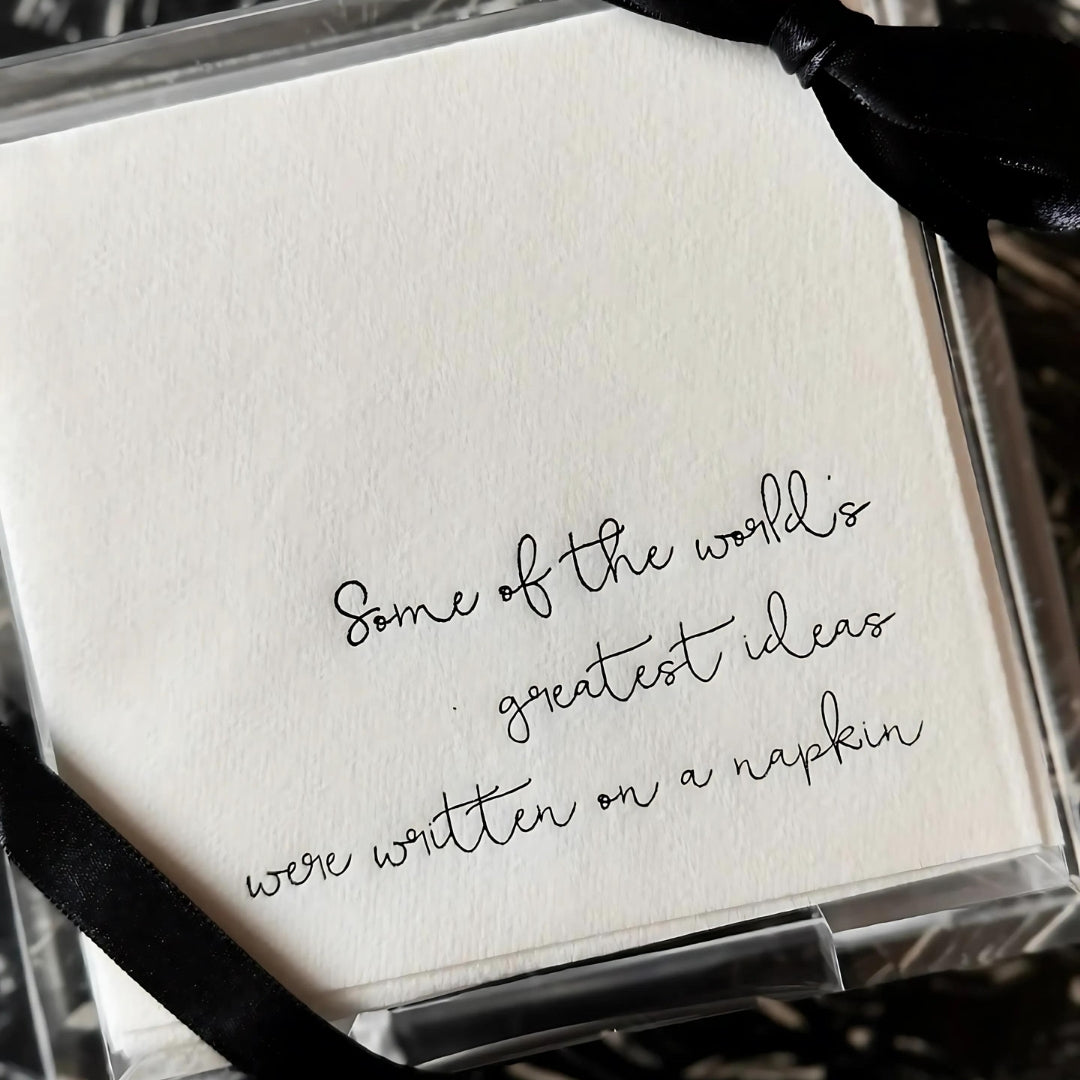 Some of the world's
greatest ideas
were written on a napkin